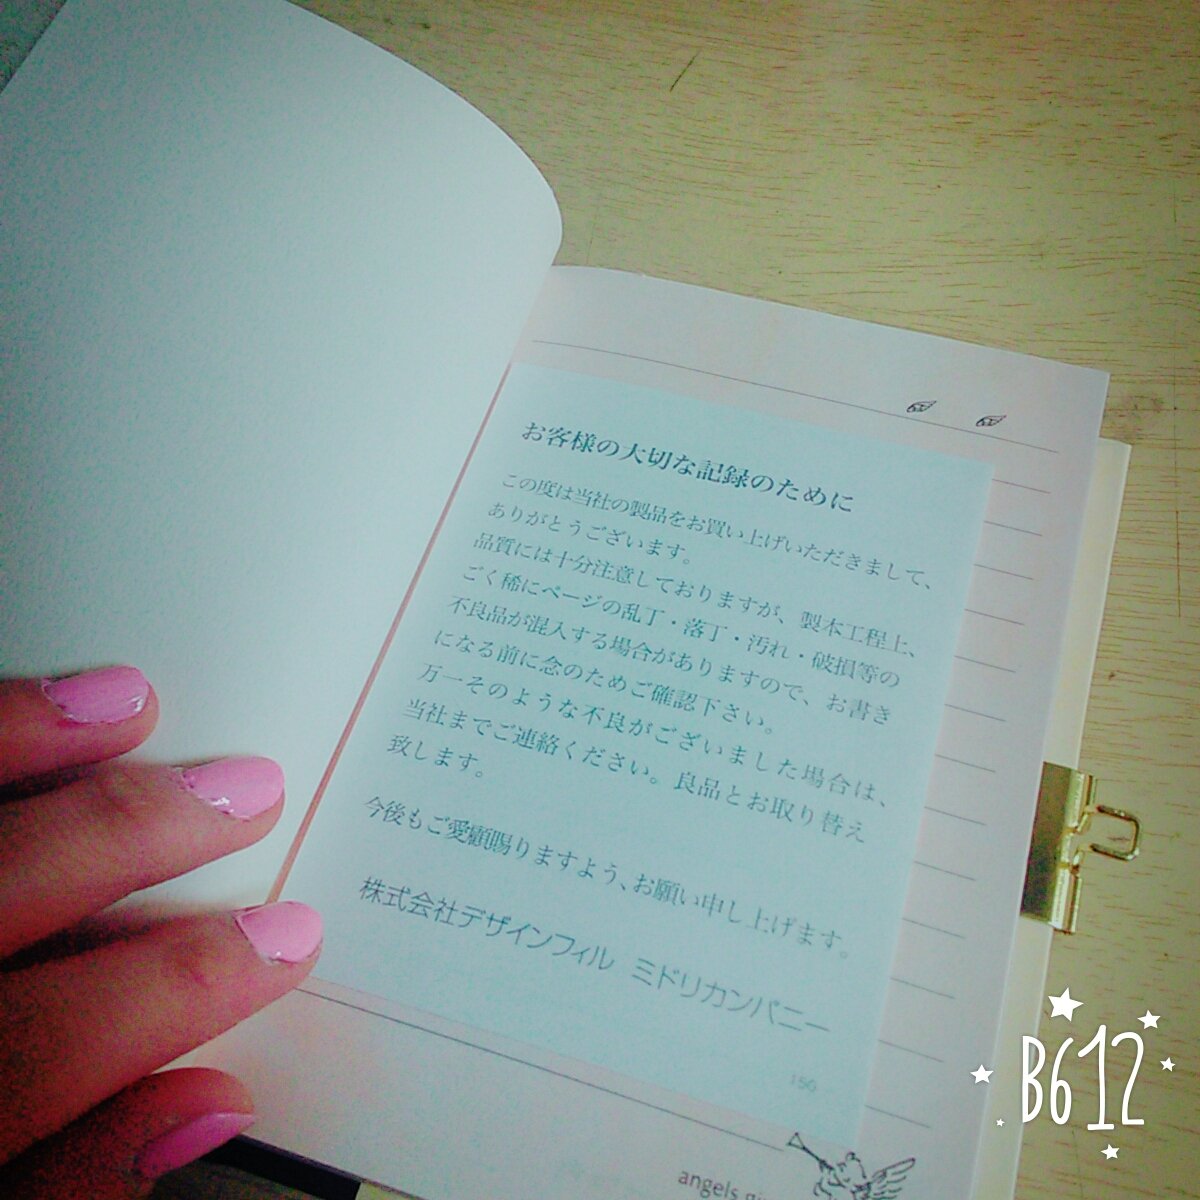 お客様の大切な記録のために
この度は当社の製品をお買い上げいただきまして、
ありがとうございます。
品質には十分注意しておりますが、製本工程上、
ごく稀にページの乱丁・落丁・汚れ・破損等の
不良品が混入する場合がありますので、お書き
になる前に念のためご確認下さい。
万一そのような不良がございました場合は、
当社までご連絡ください。良品とお取り替え
致します。
今後もご愛顧賜りますよう、お願い申し上げます。
株式会社デザインフィル ミドリカンパニー
150
angels
B612